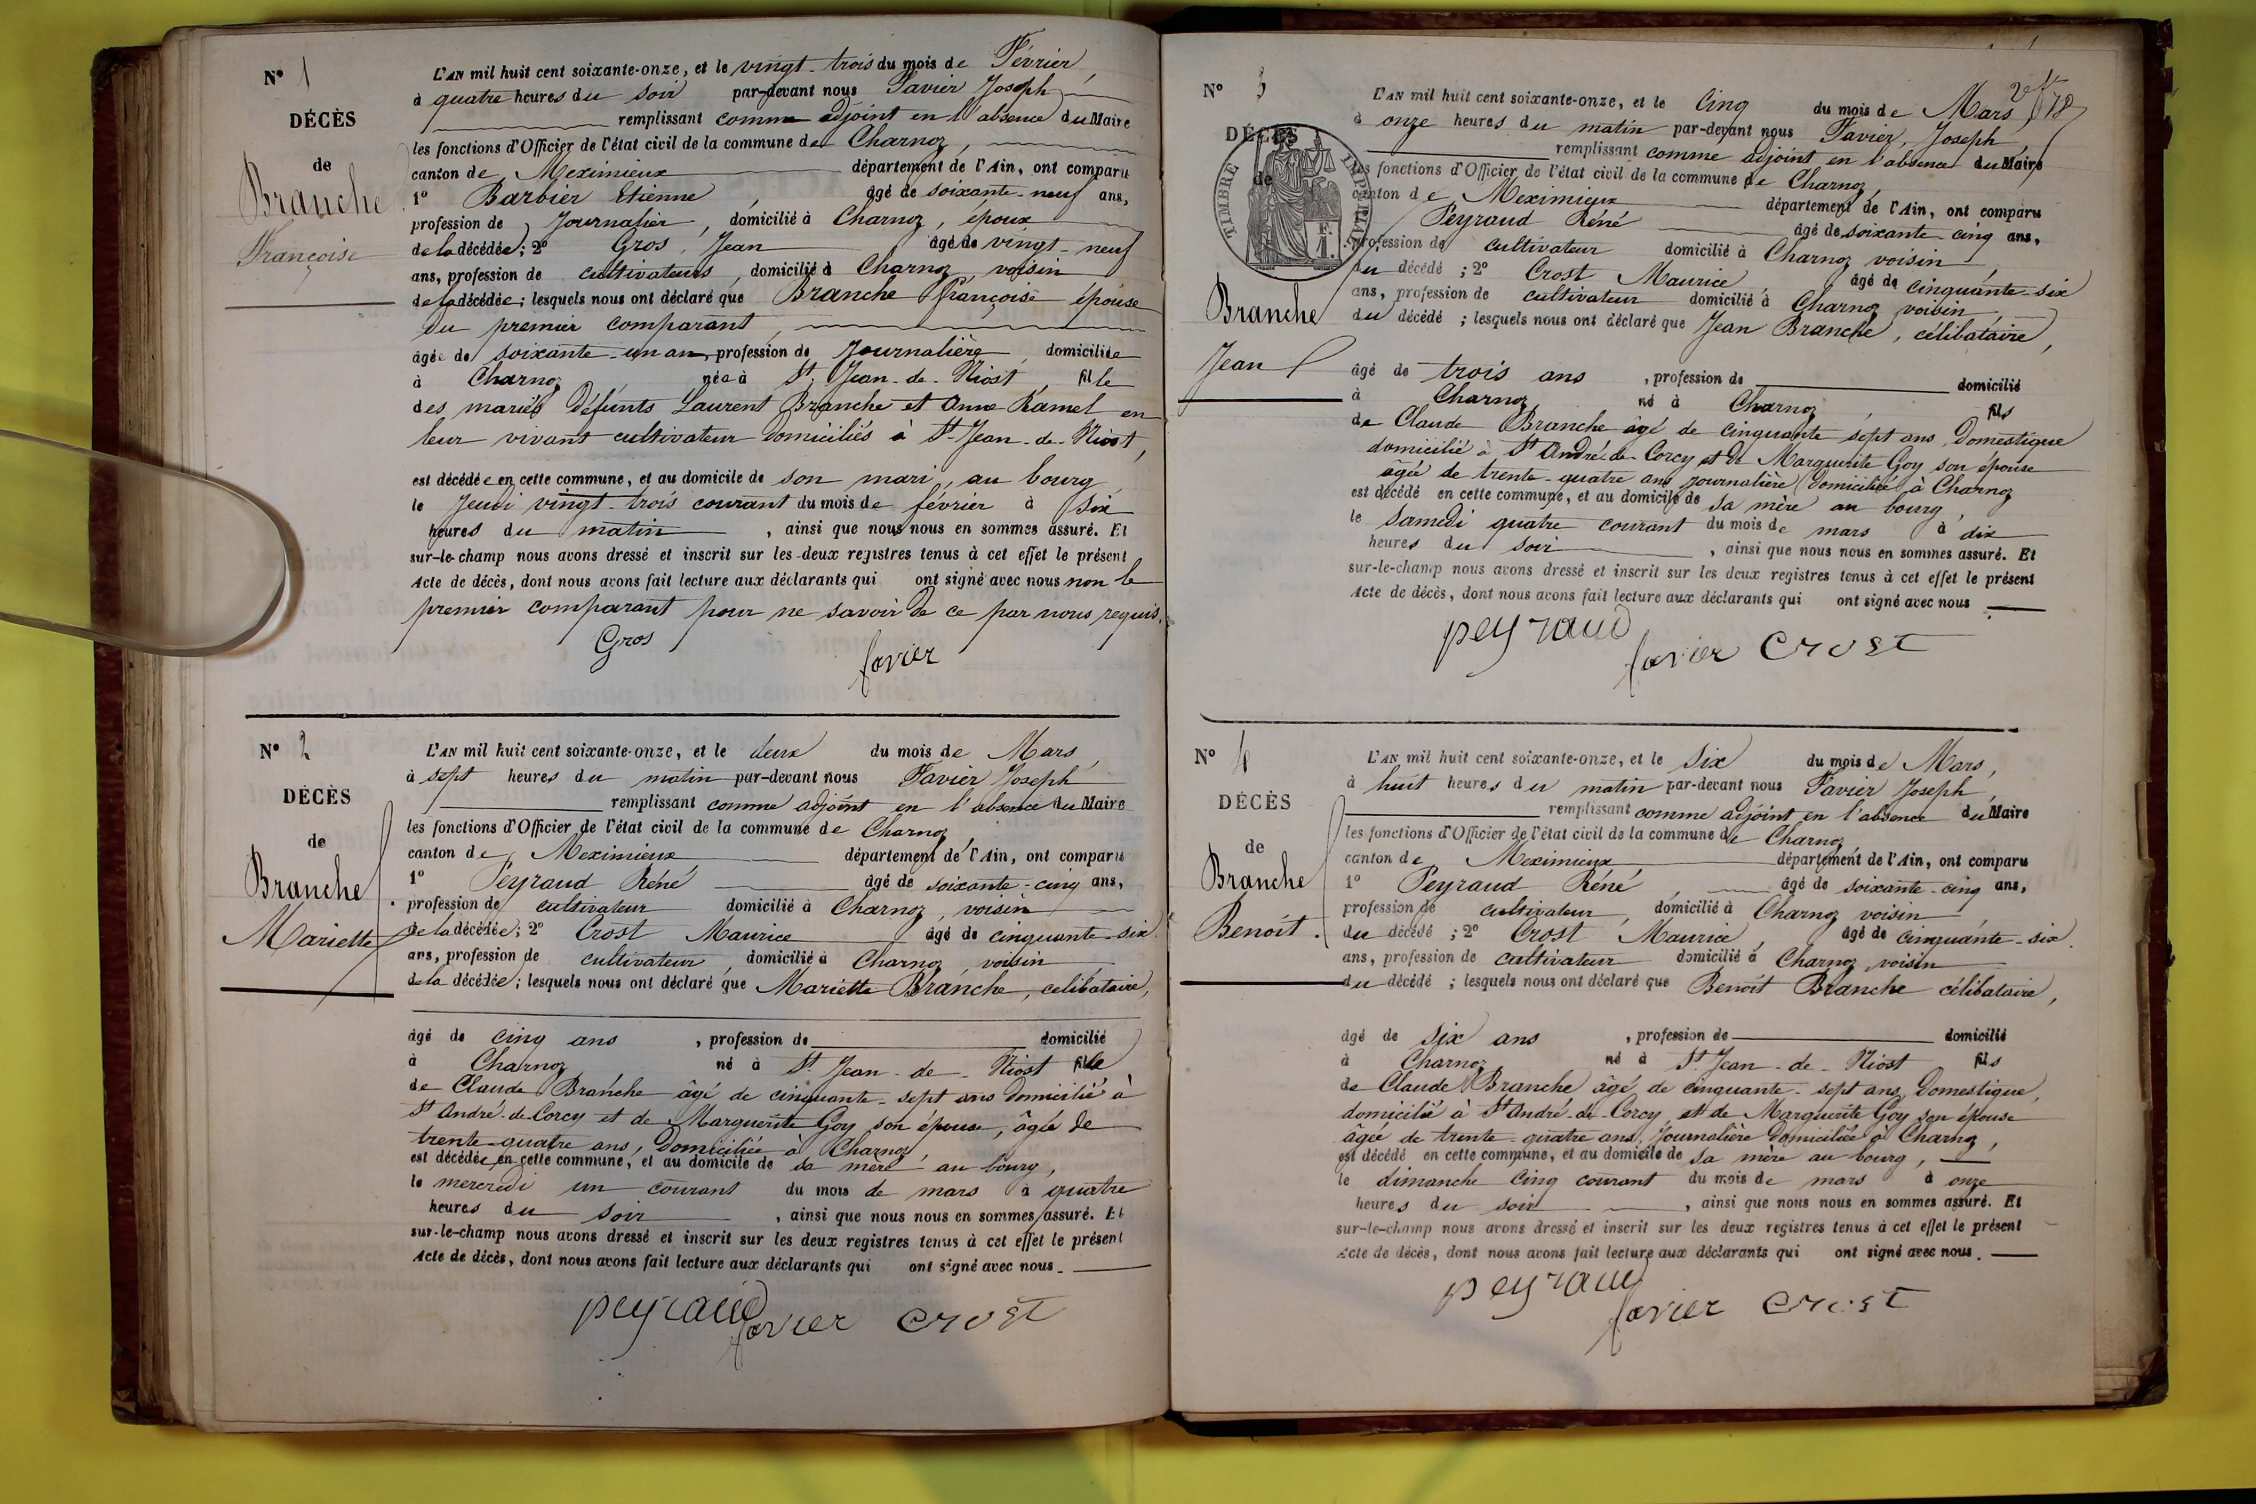 N° 1
DÉCÈS
de
Branche
Françoise
L'AN mil huit cent soixante-onze, et le vingt-trois du mois de Février,
à quatre heures du soir par-devant nous Favier Joseph
remplissant comme adjoint en l'absence du Maire
les fonctions d'Officier de l'état civil de la commune de Charnoz,
canton de Meximieux département de l'Ain, ont comparu
1° Barbier Etienne, âgé de soixante-neuf ans,
profession de Journalier, domicilié à Charnoz, époux
de la décédée; 2° Gros, Jean âgé de vingt-neuf
ans, profession de cultivateurs, domicilié à Charnoz, voisin
de la décédée; lesquels nous ont déclaré que Branche Françoise épouse
du premier comparant,
âgée de soixante-un an, profession de Journalière, domiciliée
à Charnoz née à St Jean-de-Niost, fille
des mariés défunts Laurent Branche et Anne Ramel en
leur vivant cultivateur domiciliés à St-Jean-de-Niost,
est décédée en cette commune, et au domicile de son mari, au bourg
le Jeudi vingt-trois courant du mois de février à six
heures du matin, ainsi que nous nous en sommes assuré. Et
sur-le-champ nous avons dressé et inscrit sur les deux registres tenus à cet effet le présent
Acte de décès, dont nous avons fait lecture aux déclarants qui ont signé avec nous non le
premier comparant pour ne savoir de ce par nous requis.
Gros
favier
N° 2
DÉCÈS
de
Branche
Mariette
L'AN mil huit cent soixante-onze, et le deux du mois de Mars,
à sept heures du matin par-devant nous Favier Joseph
remplissant comme adjoint en l'absence du Maire
les fonctions d'Officier de l'état civil de la commune de Charnoz,
canton de Meximieux département de l'Ain, ont comparu
1° Peyraud Réné âgé de soixante-cinq ans,
profession de cultivateur domicilié à Charnoz, voisin
de la décédée; 2° Crost Maurice âgé de cinquante-six
ans, profession de cultivateur, domicilié à Charnoz, voisin
de la décédée; lesquels nous ont déclaré que Mariette Branche, celibataire,
âgé de cinq ans, profession de domicilié
à Charnoz né à St Jean-de-Niost fille
de Claude Branche âgé de cinquante-sept ans domicilié à
St André-de-Corcy et de Marguerite Goy son épouse, âgée de
trente-quatre ans, domiciliée à Charnoz,
est décédée en cette commune, et au domicile de sa mère au bourg,
le mercredi un courant du mois de mars à quatre
heures du soir, ainsi que nous nous en sommes assuré. Et
sur-le-champ nous avons dressé et inscrit sur les deux registres tenus à cet effet le présent
Acte de décès, dont nous avons fait lecture aux déclarants qui ont signé avec nous.
peyraud favier crost
N° 3
DÉCÈS
de
TIMBRE IMPÉRIAL
F.
1.
Branche
Jean
L'AN mil huit cent soixante-onze, et le Cinq du mois de Mars,
à onze heures du matin par-devant nous Favier, Joseph
remplissant comme adjoint en l'absence du Maire
les fonctions d'Officier de l'état civil de la commune de Charnoz,
canton de Meximieux département de l'Ain, ont comparu
Peyraud Réné âgé de soixante cinq ans,
profession de cultivateur domicilié à Charnoz voisin
du décédé; 2° Crost Maurice âgé de cinquante-six
ans, profession de cultivateur domicilié à Charnoz voisin
du décédé; lesquels nous ont déclaré que Jean Branche, célibataire,
âgé de trois ans, profession de domicilié
à Charnoz né à Charnoz, fils
de Claude Branche âgé de cinquante sept ans Domestique
domicilié à St André-de-Corcy et de Marguerite Goy son épouse
âgée de trente-quatre ans journalière domiciliée à Charnoz
est décédé en cette commune, et au domicile de sa mère au bourg,
le samedi quatre courant du mois de mars à dix
heures du soir, ainsi que nous nous en sommes assuré. Et
sur-le-champ nous avons dressé et inscrit sur les deux registres tenus à cet effet le présent
Acte de décès, dont nous avons fait lecture aux déclarants qui ont signé avec nous
peyraud favier crost
N° 4
DÉCÈS
de
Branche
Benoît.
L'AN mil huit cent soixante-onze, et le six du mois de Mars,
à huit heures du matin par-devant nous Favier Joseph,
remplissant comme adjoint en l'absence du Maire
les fonctions d'Officier de l'état civil de la commune de Charnoz
canton de Meximieux département de l'Ain, ont comparu
1° Peyraud Réné, âgé de soixante-cinq ans,
profession de cultivateur, domicilié à Charnoz voisin,
du décédé; 2° Crost Maurice, âgé de cinquante-six
ans, profession de cultivateur domicilié à Charnoz, voisin
du décédé; lesquels nous ont déclaré que Benoît Branche célibataire,
âgé de six ans, profession de domicilié
à Charnoz né à St Jean-de-Niost fils
de Claude Branche âgé de cinquante-sept ans, Domestique,
domicilié à St André-de-Corcy et de Marguerite Goy son épouse
âgée de trente-quatre ans, Journalière domiciliée à Charnoz,
est décédé en cette commune, et au domicile de sa mère au bourg,
le dimanche cinq courant du mois de mars à onze
heures du soir, ainsi que nous nous en sommes assuré. Et
sur-le-champ nous avons dressé et inscrit sur les deux registres tenus à cet effet le présent
Acte de décès, dont nous avons fait lecture aux déclarants qui ont signé avec nous.
peyraud favier crost